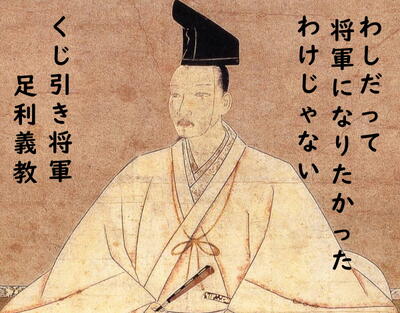 わしだって
将軍になりたかった
わけじゃない
くじ引き将軍
足利義教